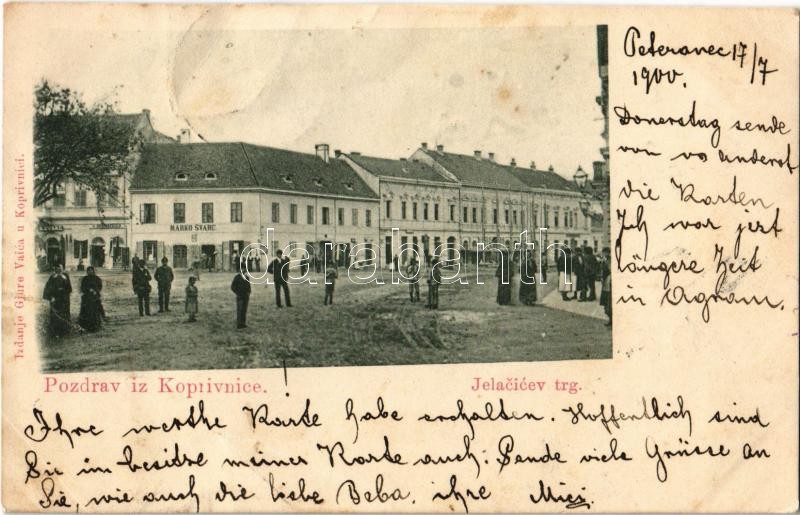 Peteranec 17/7
1900.
Donerstag sende
von wo anderst
die Karten
Ich war jezt
längere Zeit
in Agram.
MARKO ŠVARC
darabanth
Izdanje Gjure Vaića u Koprivnici.
Pozdrav iz Koprivnice.
Jelačićev trg.
Ihre werthe Karte habe erchalten. Hoffentlich sind
Sie im besitze meiner Karte auch. Sende viele Grüsse an
Sie, wie auch die liebe Beba. ihre Mici.